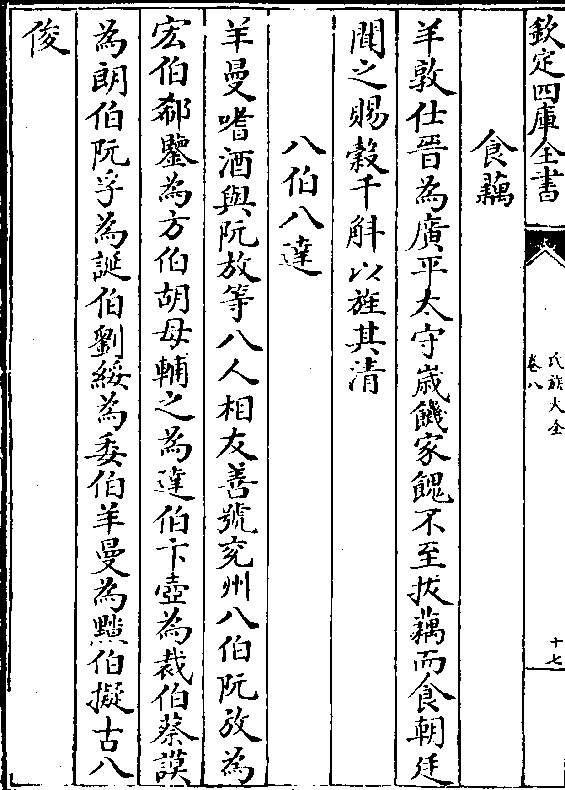 欽定四庫全書
氏族大全
卷八
十七
食藕
羊敦仕晉為廣平太守嵗饑家餽不至拔藕而食朝廷
聞之賜穀千斛以旌其清
八伯八達
羊曼嗜酒與阮放等八人相友善號兖州八伯阮放為
宏伯郗鑒為方伯胡母輔之為達伯卞壺為裁伯蔡謨
為朗伯阮孚為誕伯劉綏為委伯羊曼為㸃伯擬古八
俊